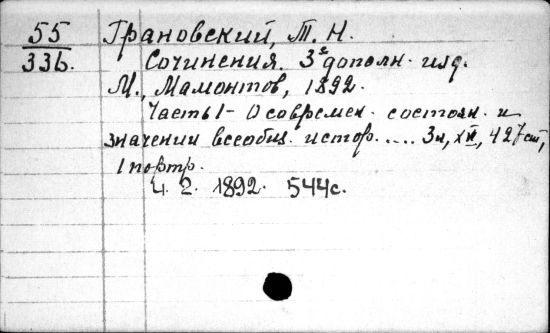 55 Грановский, Т. Н.
336. Сочинения. 3е дополн. изд.
М., Мамонтов, 1892.
Часть 1 - О современ. состоян. и
значении всеобщ. истор. .... 3 л, XII, 427 ст,
1 портр.
Ч. 2. 1892. 544 с.